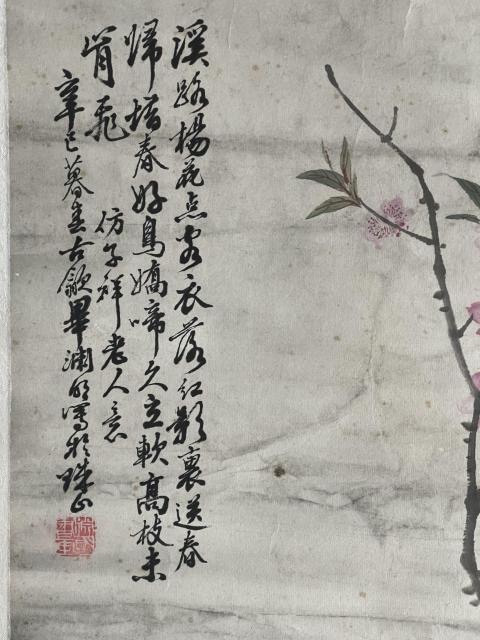 溪路楊花点客衣落红影裏送春
歸培春好鳥嬌啼久立軟高枝未
肯飛
仿子祥老人意
辛巳暮春古歙畢淵明写於珠山